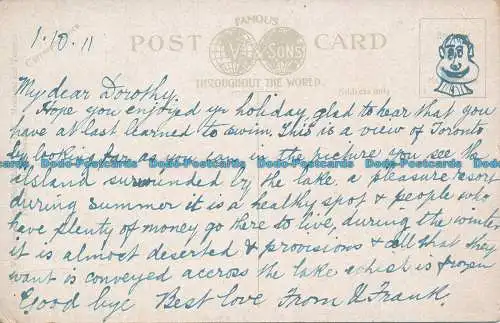 1.10.11
FAMOUS
POST V & SONS CARD
THROUGHOUT THE WORLD.
Address only
My dear Dorothy
Hope you enjoyed yr holiday, glad to hear that you
have at last learned to swim. This is a view of Toronto
the picture you see the
island surrounded by the lake, a pleasure resort
during summer it is a healthy spot & people who
have plenty of money go there to live, during the winter
it is almost deserted & provisions & all that they
want is conveyed accross the lake which is frozen
Good bye Best love From U Frank.
bo-Postcards